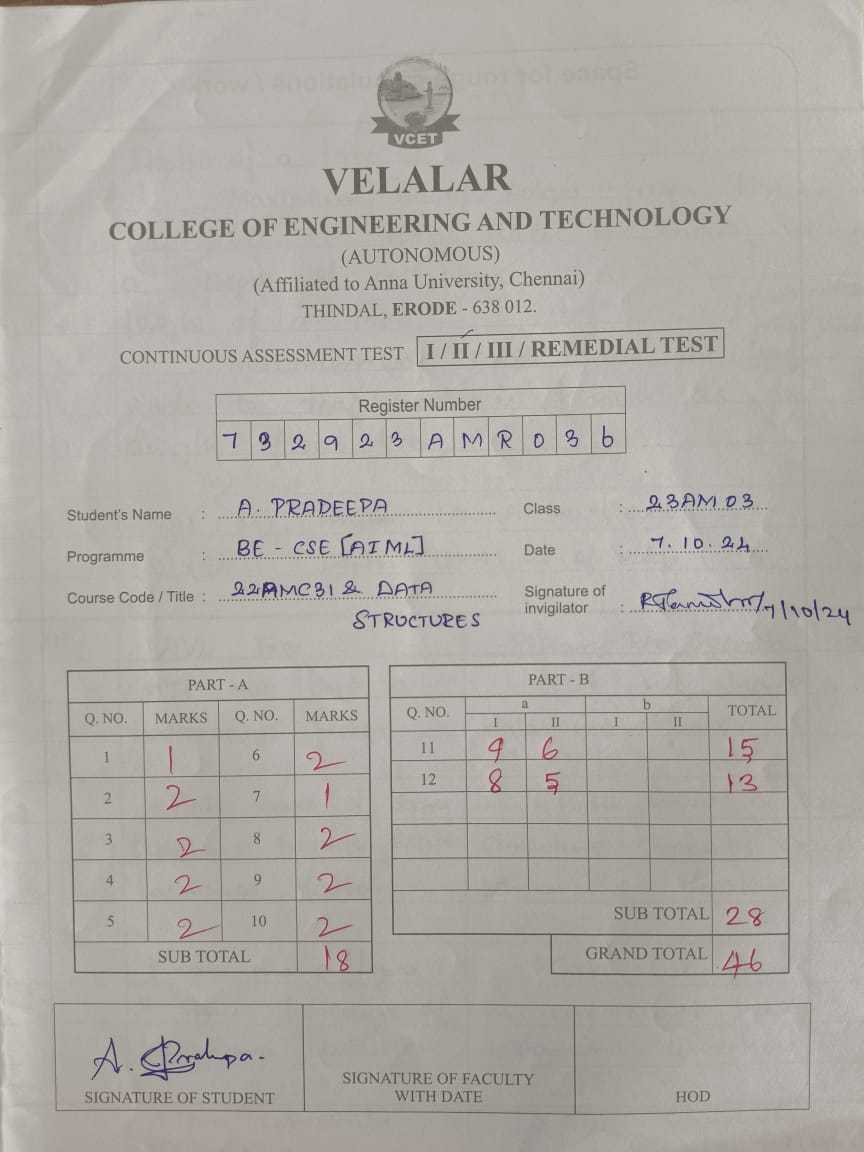 VCET
VELALAR
COLLEGE OF ENGINEERING AND TECHNOLOGY
(AUTONOMOUS)
(Affiliated to Anna University, Chennai)
THINDAL, ERODE - 638 012.
CONTINUOUS ASSESSMENT TEST I / II / III / REMEDIAL TEST
Register Number
7 3 2 9 2 3 A M R 0 3 6
Student's Name : A. PRADEEPA Class : 23AM03
Programme : BE - CSE [AIML] Date : 7.10.24
Course Code / Title : 22AMC31 & DATA STRUCTURES Signature of invigilator : 7/10/24
PART - A
Q. NO. MARKS Q. NO. MARKS
1 1 6 2
2 2 7 1
3 2 8 2
4 2 9 2
5 2 10 2
SUB TOTAL 18
PART - B
Q. NO. a b TOTAL
I II I II
11 9 6 15
12 8 5 13
SUB TOTAL 28
GRAND TOTAL 46
A. Pradeepa.
SIGNATURE OF STUDENT
SIGNATURE OF FACULTY
WITH DATE
HOD